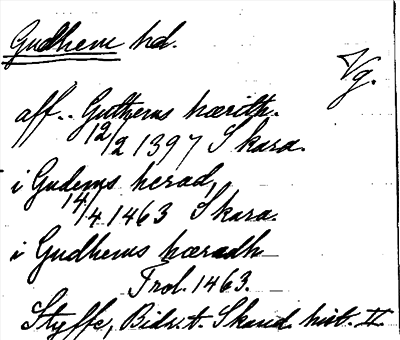 Gudhem hd.
Vg.
aff.. Guthems hærith.
12/2 1397 Skara.
i Gudems herad,
14/4 1463 Skara.
i Gudhems hæradh
Trol. 1463.
Styffe, Bidr. t. Skand. hist. II